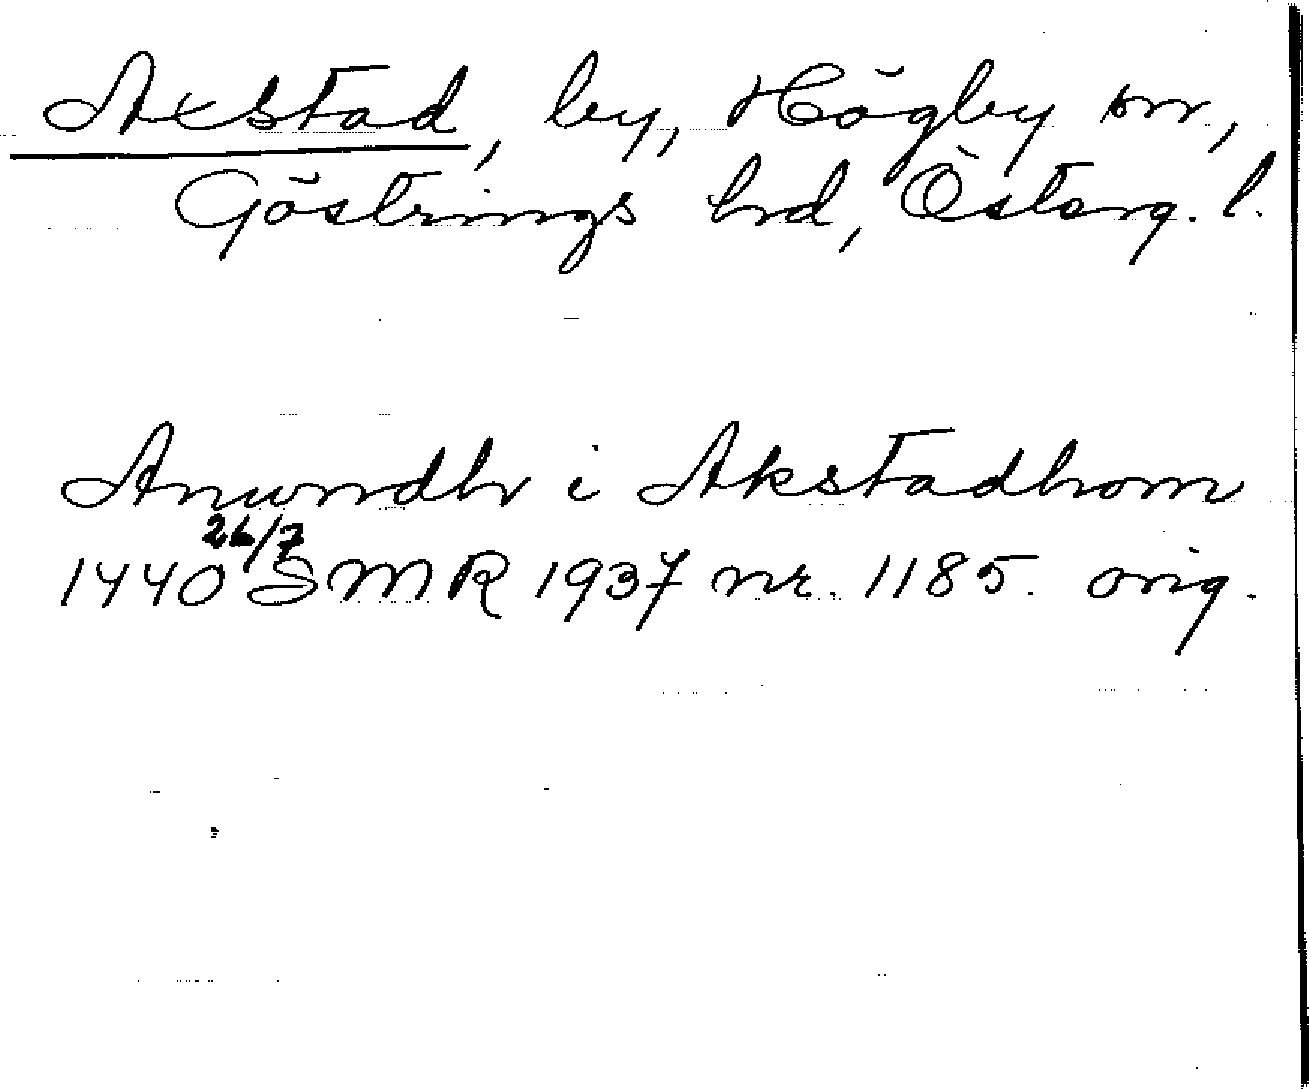 Axstad, by, Högby sn,
Göstrings hrd, Österg. l.
Anundhr i Akstadhom
1440 26/7 SMR 1937 nr. 1185. orig.